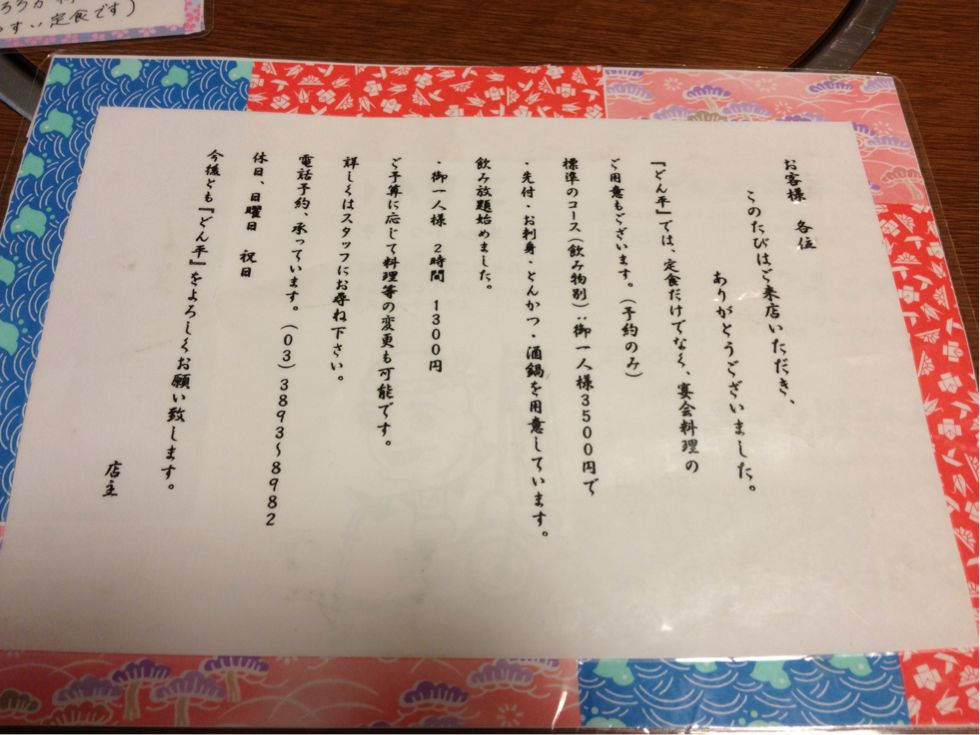 お客様 各位
このたびはご来店いただき、
ありがとうございました。
『どん平』では、定食だけでなく、宴会料理の
ご用意もございます。(予約のみ)
標準のコース(飲み物別):御一人様3500円で
・先付・お刺身・とんかつ・酒鍋を用意しています。
飲み放題始めました。
・御一人様 2時間 1300円
ご予算に応じて料理等の変更も可能です。
詳しくはスタッフにお尋ね下さい。
電話予約、承っています。(03)3893〜8982
休日、日曜日 祝日
今後とも『どん平』をよろしくお願い致します。
店主
すい定食です)